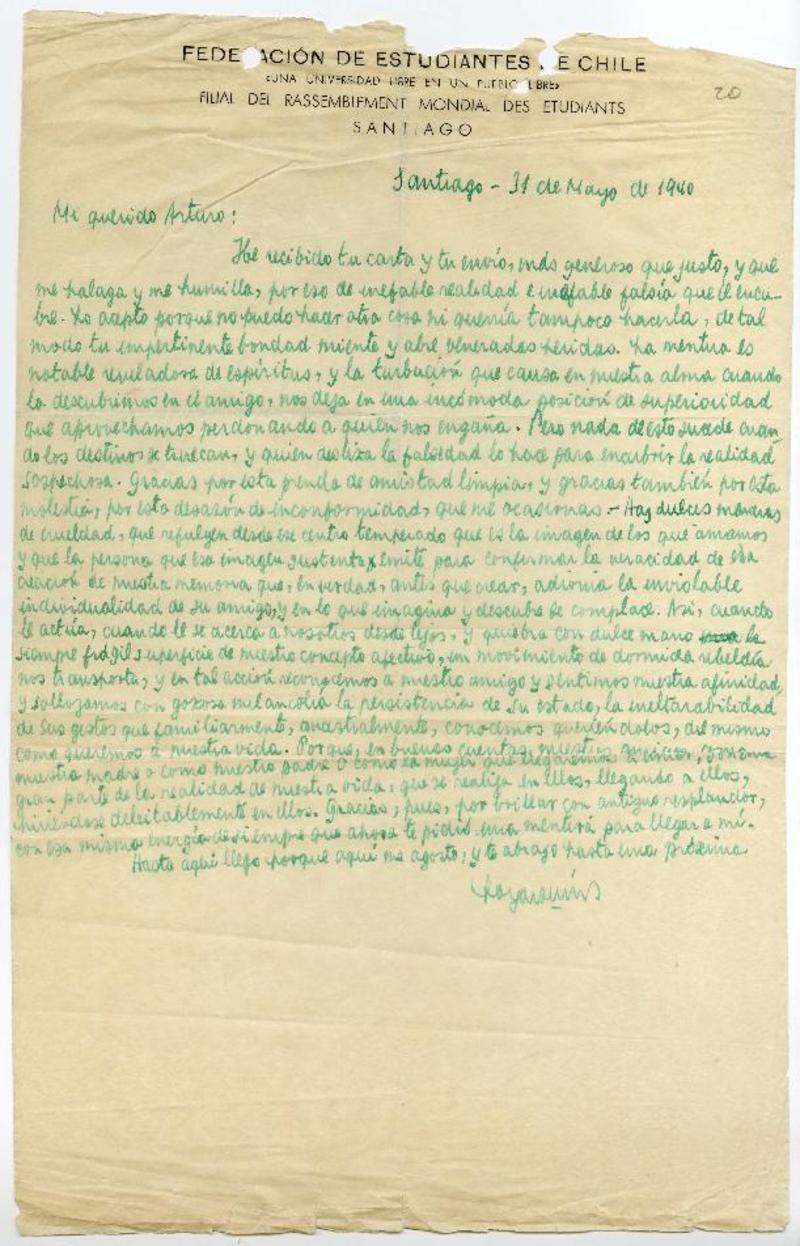 FEDERACIÓN DE ESTUDIANTES DE CHILE
«UNA UNIVERSIDAD LIBRE EN UN PUEBLO LIBRE»
FILIAL DEL RASSEMBLEMENT MONDIAL DES ETUDIANTS
SANTIAGO
20
Santiago - 31 de Mayo de 1940
Mi querido Arturo:
He recibido tu carta y tu envío, más generoso que justo, y que
me halaga y me humilla, por eso de inefable realidad e inefable falsía que él encu-
bre. Lo acepto porque no puedo hacer otra cosa ni quería tampoco hacerla, de tal
modo tu impertinente bondad miente y abre veneradas heridas. La mentira es
notable reveladora de espíritus, y la turbación que causa en nuestra alma cuando
la descubrimos en el amigo, nos deja en una incómoda posición de superioridad
que aprovechamos perdonando a quien nos engaña. Pero nada de esto sucede cuan-
do los destinos se truecan, y quien desliza la falsedad lo hace para encubrir la realidad
sospechosa. Gracias por esta prenda de amistad limpia, y gracias también por esta
molestia, por esta desazón de inconformidad, que me ocasionas. - Hay dulces maneras
de crueldad, que refulgen desde ese centro temperado que es la imagen de los que amamos
y que la persona que esa imagen sustenta emite para confirmar la veracidad de esa
creación de nuestra memoria que, en verdad, antes que crear, adivina la inviolable
individualidad de su amigo, y en lo que imagina y descubre se complace. Así, cuando
él actúa, cuando él se acerca a nosotros desde lejos, y quiebra con dulce mano la
siempre frágil superficie de nuestro concepto afectivo, un movimiento de dormida rebeldía
nos transporta, y en tal acción reconocemos a nuestro amigo y sentimos nuestra afinidad,
y sollozamos con gozosa melancolía la persistencia de su estado, la inalterabilidad
de sus gestos que familiarmente, ancestralmente, conocemos queriéndolos, del mismo
como queremos a nuestra vida. Porque, en buenas cuentas, nuestros amigos, son como
nuestra madre o como nuestro padre o como la mujer que llegaremos a
gran parte de la realidad de nuestra vida, que se realiza en ellos, llegando a ellos,
hiriéndose deleitablemente en ellos. Gracias, pues, por brillar con antiguo resplandor,
con esa misma energía de siempre que ahora te pidió una mentira para llegar a mí.
Hasta aquí llego porque aquí me agosto, y te abrazo hasta una próxima